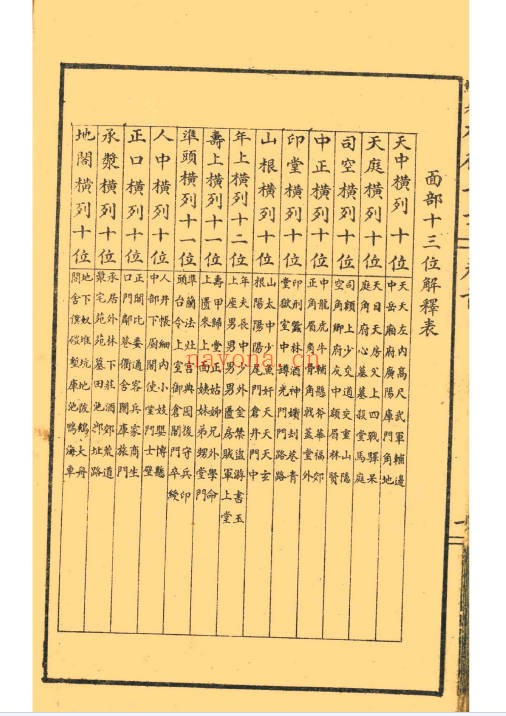 面部十三位解釋表
天中橫列十位
天天左內高尺武軍輔邊
中岳廂府廣陽庫門角地
天庭橫列十位
天日天房父上四戰驛
庭角府心墓墓殺堂馬庭
司空橫列十位
司額上少交道交重山隱
空角卿府友中額眉林賢
中正橫列十位
中龍虎牛輔懸斧華福郊
正角眉角骨角戟蓋堂外
印堂橫列十位
印刑蠶林酒神嬪刦巷青
堂獄室中罇光門門路路
山根橫列十位
山太中少魚奸天天天玄
根陽陽陽尾門倉井門中
年上橫列十二位
年夫長中少外金禁盜游書玉
上座男男男男匱房賊軍上堂
壽上橫列十一位
壽甲歸堂正姑姊兄外學命
上匱來上面姨妹弟甥堂門
準頭橫列十一位
準蘭法灶宮典園後守兵印
頭台令上室御倉閣門卒綬
人中橫列十位
人井帳細內小妓嬰博懸
中部下廚閣使堂門士壁
正口橫列十位
正閣比委通客兵家商生
口門鄰巷衢舍蘭庫旅門
承漿橫列十位
承居外林下莊酒郊荒道
漿宅苑苑墓田池郭址路
地閣橫列十位
地下奴堆坑地陂鵝大舟
閣舍僕磑塹庫池鴨海車
nayona.cn